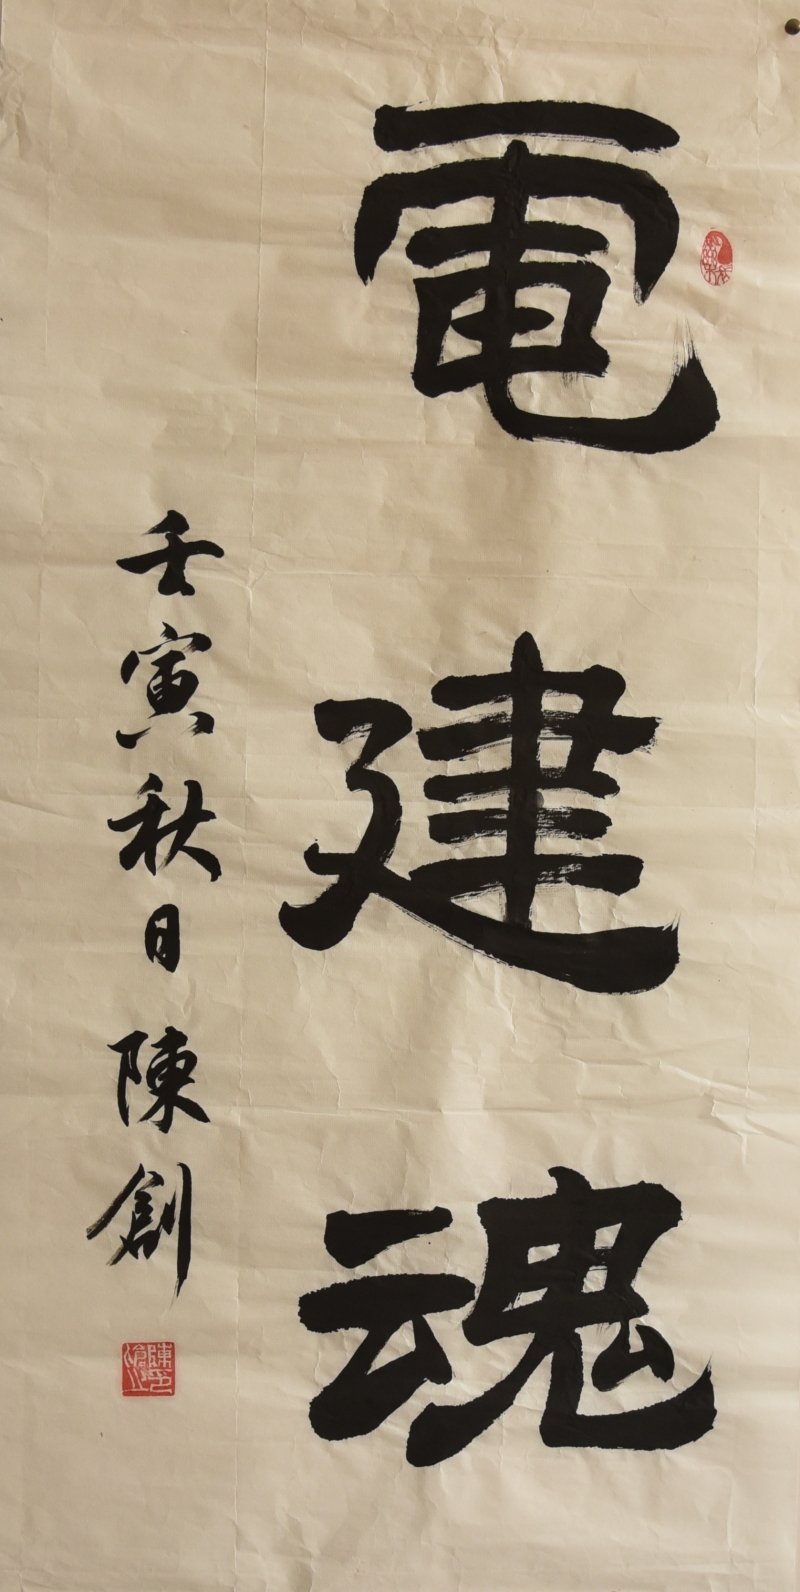 電建魂
壬寅秋日陳創